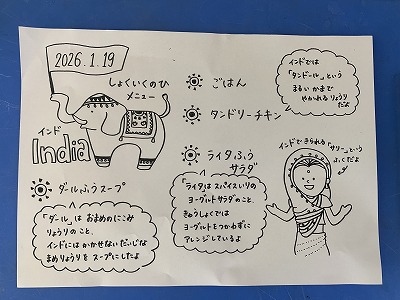 2026.1.19
しょくいくのひ
メニュー
ごはん
タンドリーチキン
ライタふう
サラダ
ダールふうスープ
インド
India
インドでは
「タンドール」という
まるいかまで
やかれるりょうり
だよ
インドできられる「サリー」という
ふくだよ
「ダール」は おまめのにこみ
りょうりのこと、
インドにはかかせないだいじな
まめりょうりを スープにしたよ
「ライタ」は スパイスいりの
ヨーグルトサラダのこと、
きゅうしょくでは
ヨーグルトをつかわずに
アレンジしているよ